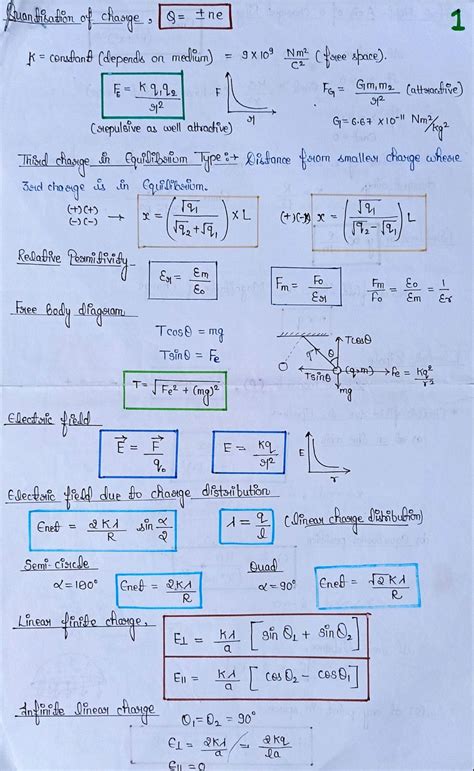 Quantisation of charge, Q = ±ne
1
K = constant (depends on medium) = 9 × 10⁹ Nm²/C² (free space).
F_E = K q₁q₂/r²
F
r
F_G = Gm₁m₂/r² (attractive)
(repulsive as well attractive)
G = 6.67 × 10⁻¹¹ Nm²/kg²
Third charge in Equilibrium Type :→ Distance from smaller charge where
3rd charge is in Equilibrium.
(+)(+)
(-)(-) → x = (√q₁/(√q₂+√q₁)) × L
(+)(-) x = (√q₁/(√q₂-√q₁)) L
Relative Permitivity
εr = εm/ε₀
Fm = F₀/εr
Fm/F₀ = ε₀/εm = 1/εr
Free body diagram
Tcosθ = mg
Tsinθ = Fe
T = √(Fe² + (mg)²)
T
θ
Tcosθ
Tsinθ
(q,m)
Fe = kq²/r²
mg
Electric field
E⃗ = F⃗/q₀
E = kq/r²
E
r
Electric field due to charge distribution
Enet = 2Kλ/R sin α/2
λ = q/l (linear charge distribution)
Semi-circle
α = 180°
Enet = 2Kλ/R
Quad
α = 90°
Enet = √2Kλ/R
Linear finite charge,
E⊥ = Kλ/a [sinθ₁ + sinθ₂]
E∥ = Kλ/a [cosθ₂ - cosθ₁]
Infinite linear charge
θ₁ = θ₂ = 90°
E⊥ = 2Kλ/a = 2Kq/la
E∥ = 0